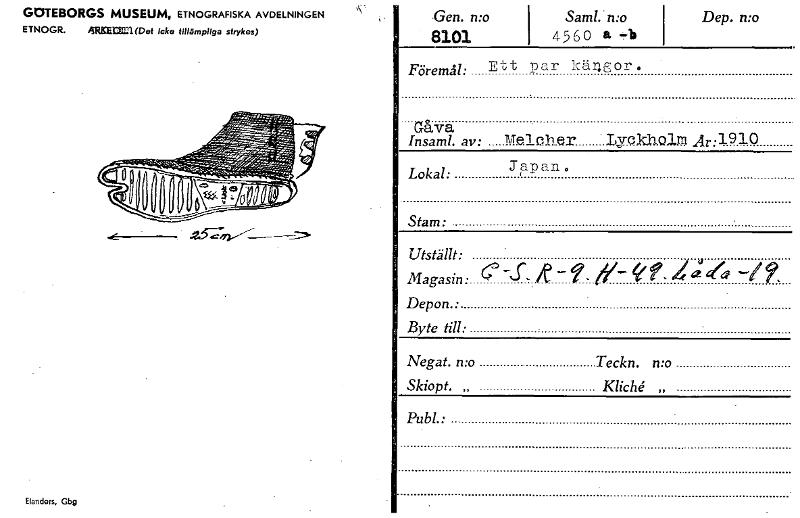 GÖTEBORGS MUSEUM, ETNOGRAFISKA AVDELNINGEN
ETNOGR. ARKEOL. (Det icke tillämpliga strykes)
25 cm
Elanders, Gbg
Gen. n:o Saml. n:o Dep. n:o
8101 4560 a-b
Föremål: Ett par kängor.
Gåva
Insaml. av: Melcher Lyckholm År: 1910
Lokal: Japan.
Stam:
Utställt:
Magasin: G-S. R-9. H-49. Låda-19.
Depon.:
Byte till:
Negat. n:o Teckn. n:o
Skiopt. „ Kliché „
Publ.: